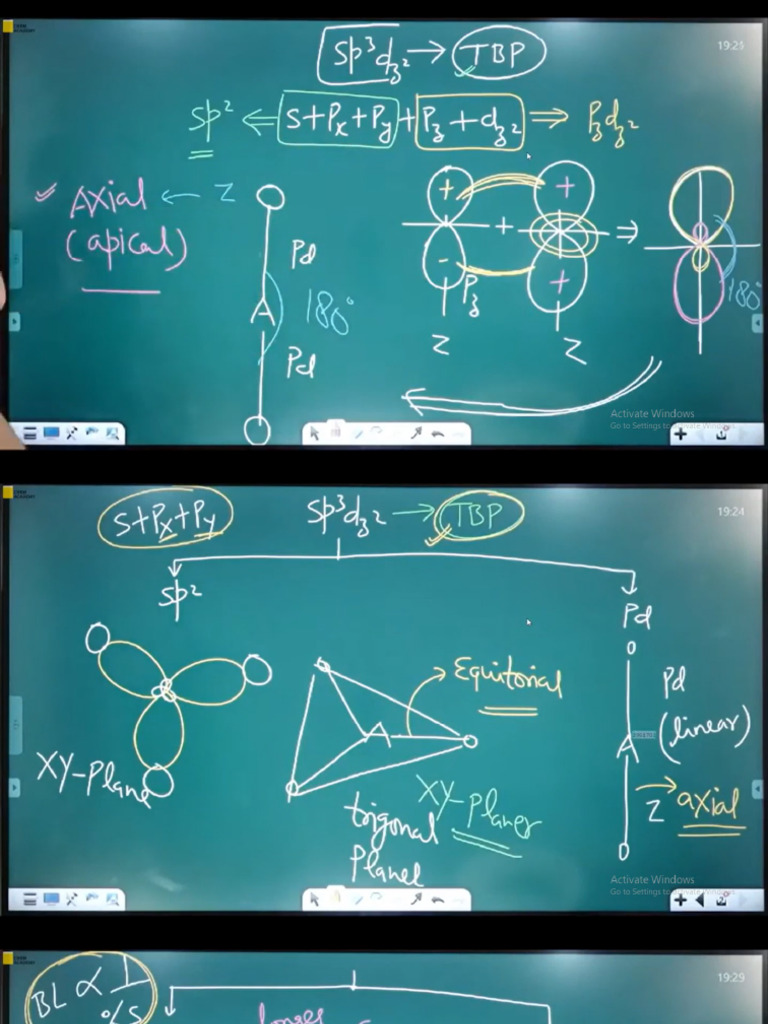 19:21
Sp³d_z² → TBP
Sp² ⇐ S+Px+Py + Pz+dz² ⇒ Pzdz²
Axial ← Z
(apical)
Pd
A
180°
Pd
+ + +
- +
Pz
Z Z
180°
Activate Windows
Go to Settings to activate Windows.
19:24
S+Px+Py
Sp³dz² → TBP
Sp²
Pd
XY-Plane
A
Equitorial
XY-planer
trigonal
Planel
Pd
(linear)
A
Z axial
Activate Windows
Go to Settings to activate Windows.
19:29
BL ∝ 1
%S
longer